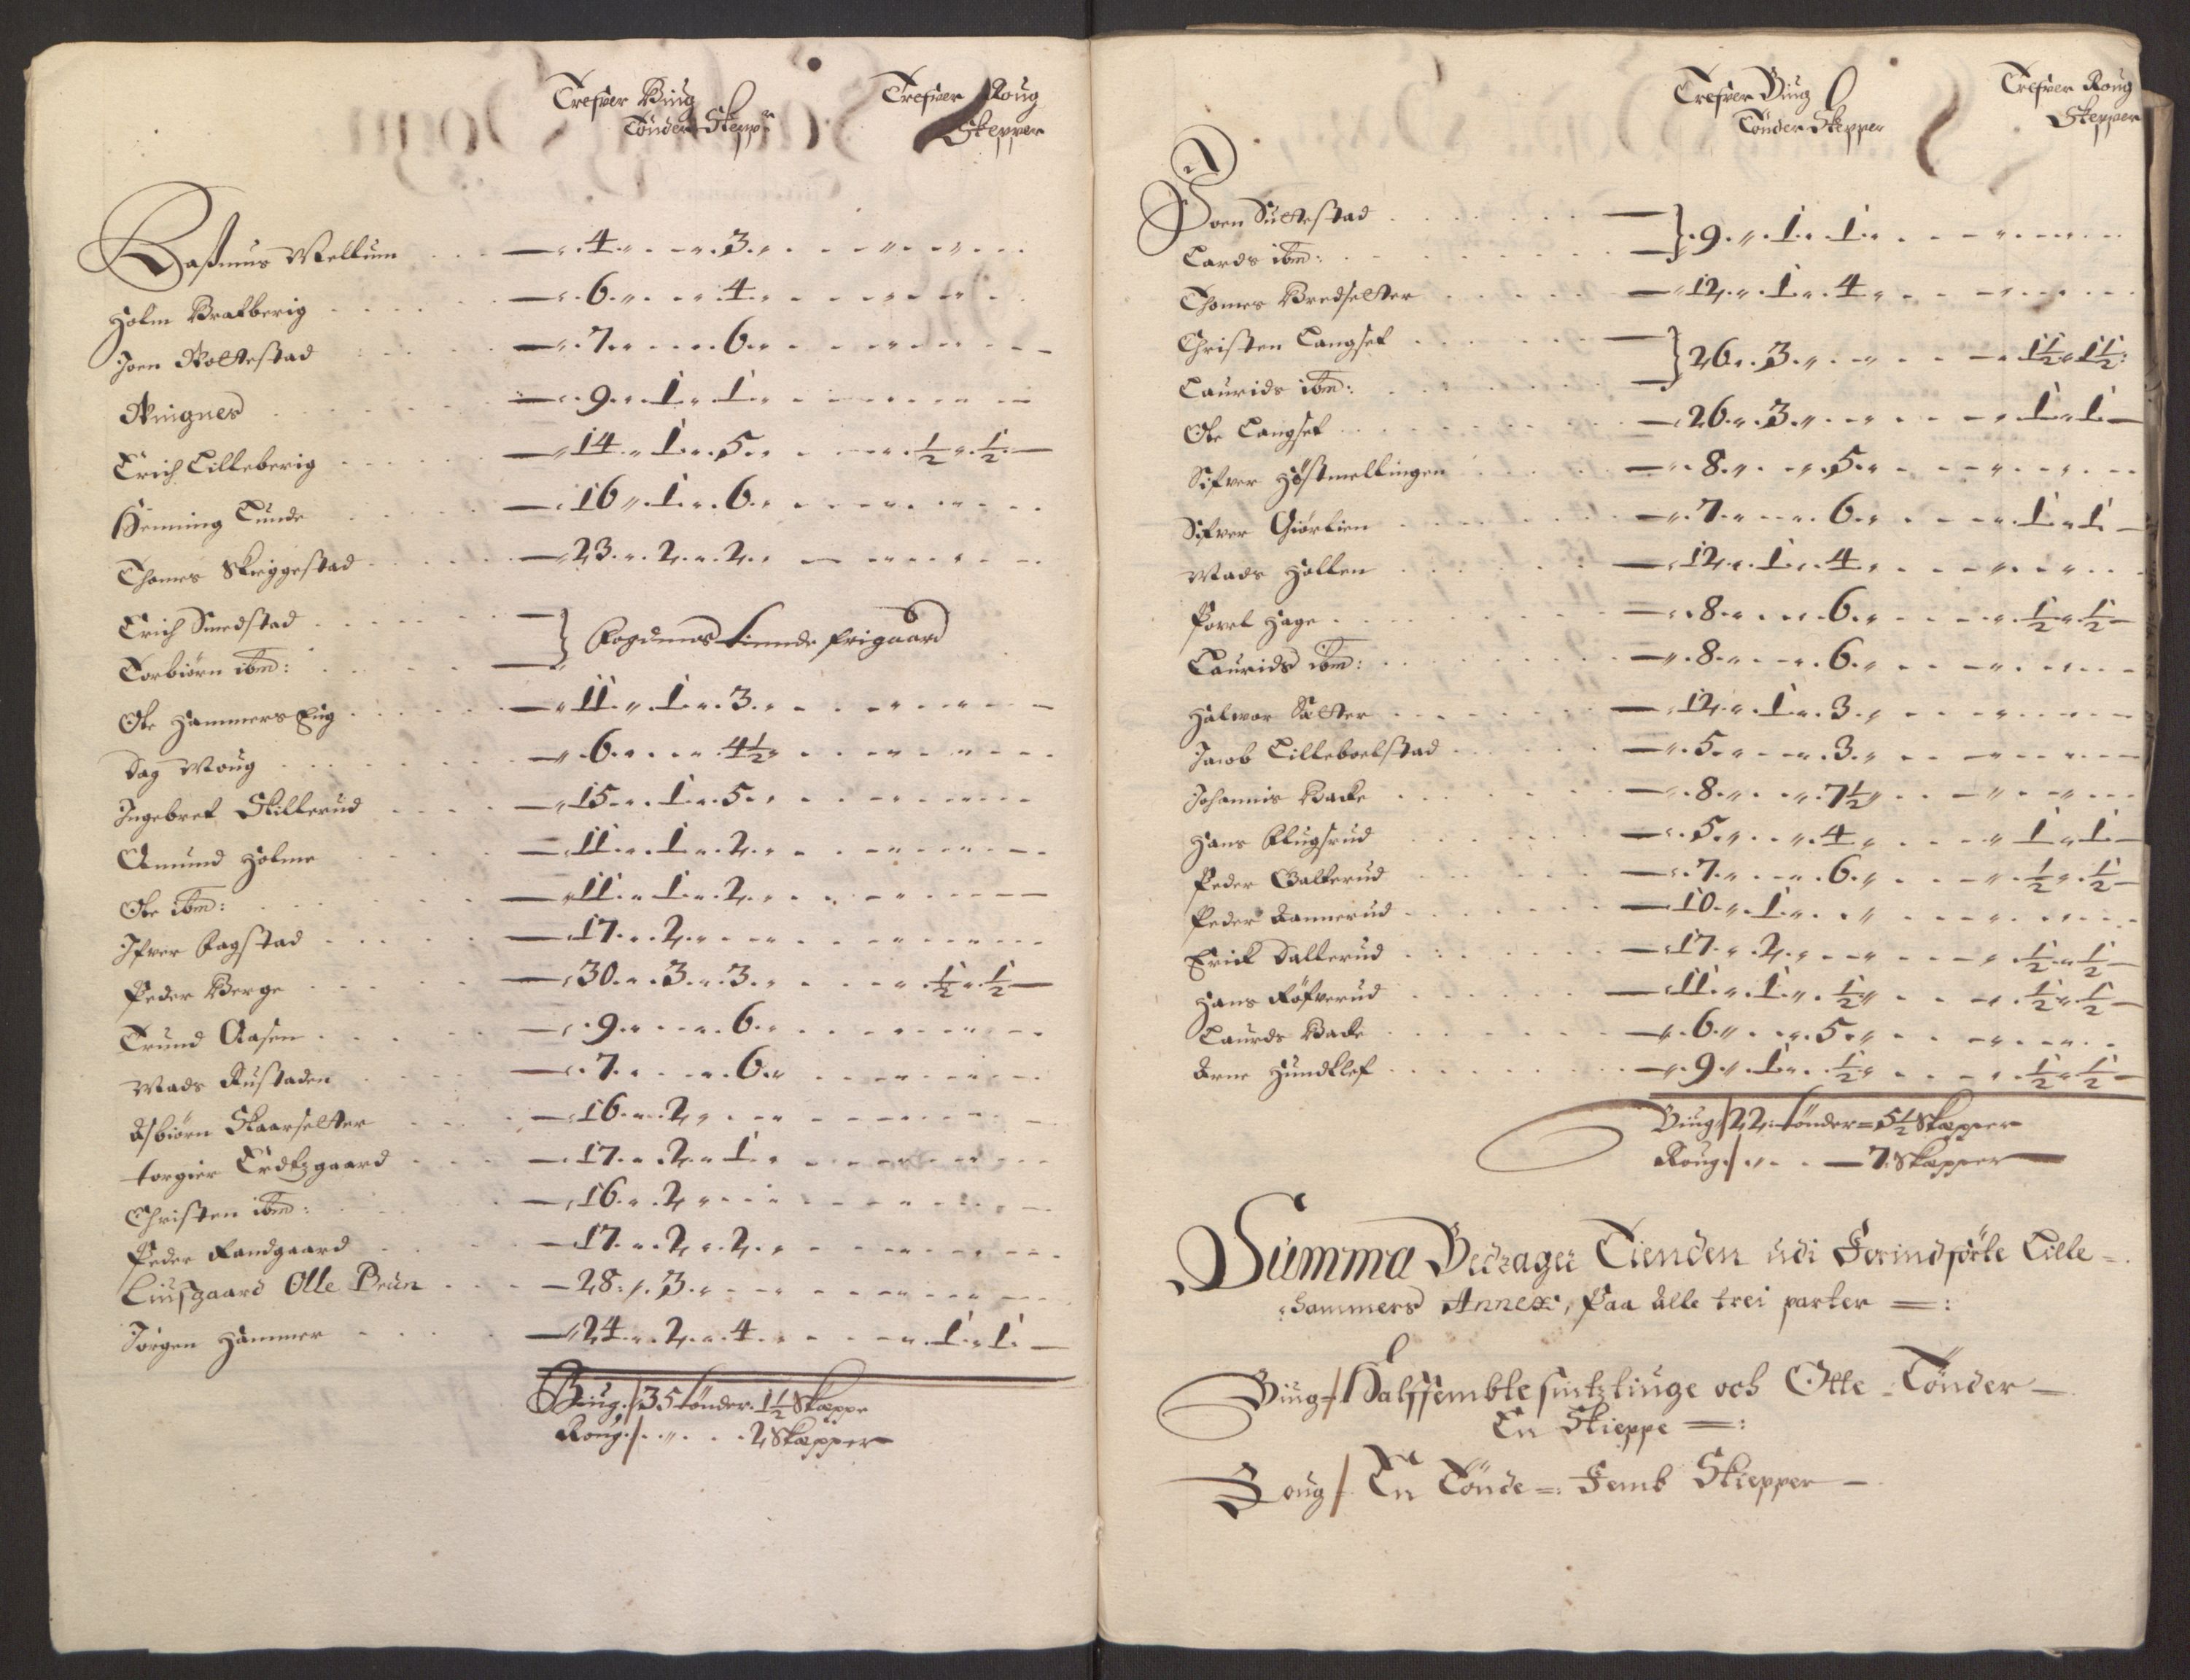 Trefver Biug Trefver Roug
Tønder Skepp Skepper
Rasmus Mellum 4 3
Holm Bratberig 6 4
Joen Nolstestad 7 6
Ringnes 9 1 1
Erich Lilleberig 14 1 5 ½ ½
Henning Lunde 16 1 6
Thomes Skieggestad 23 2 2
Erich Smedstad
Torbiørn ibm: } Fogdens tiende frigaard
Ole Hammers Eng 11 1 3
Dag Moug 6 4½
Ingebret Skillerud 15 1 5
Amund Holme 11 1 2
Ole ibm: 11 1 2
Ifver Fagstad 17 2
Peder Berge 30 3 3 ½ ½
Trund Aasen 9 6
Mads Rustaden 7 6
Asbiørn Skaarsetter 16 2
torgier Erdtzgaard 17 2 1
Christen ibm: 16 2
Peder Randgaard 17 2 2
Liusgaard Olle Prein 28 3
Jørgen Hammer 24 2 4 1 1
Biug / 35 tønder 1½ Skæppe
Roug / 2 Skæpper
Trefver Biug Trefver Roug
Tønder Skepper Skepper
Joen Suttestad
Lards ibm: } 9 1 1
Thomes Bredsetter 12 1 4
Christen Langset
Laurids ibm: } 26 3 1½ 1½
Ole Langset 26 3 1 1
Sifver Høstmellingen 8 5
Sifver Giørlien 7 6 1 1
Mads Hollen 12 1 4
Povel Hage 8 6 ½ ½
Laurids ibm: 8 6
Halvor Sætter 12 1 3
Jacob Lilleboelstad 5 3
Johannis Backe 8 7½
Hans Flugsrud 5 4 1 1
Peder Balterud 7 6 ½ ½
Peder Rannerud 10 1
Erick Dallerud 17 2 ½ ½
Hans Røfverud 11 1 ½ ½ ½
Laurds Backe 6 5
Arne Hundklef 9 1 ½ ½ ½
Biug / 22 tønder = 5½ Skæpper
Roug / 7 Skæpper
Summa Bedrager Tienden udi Lille =
hammers Annex, Paa alle trei parter =:
Biug / Halffembtesindztiuge och Otte Tønder
En Skieppe =:
Roug / En Tønde =: Femb Skiepper